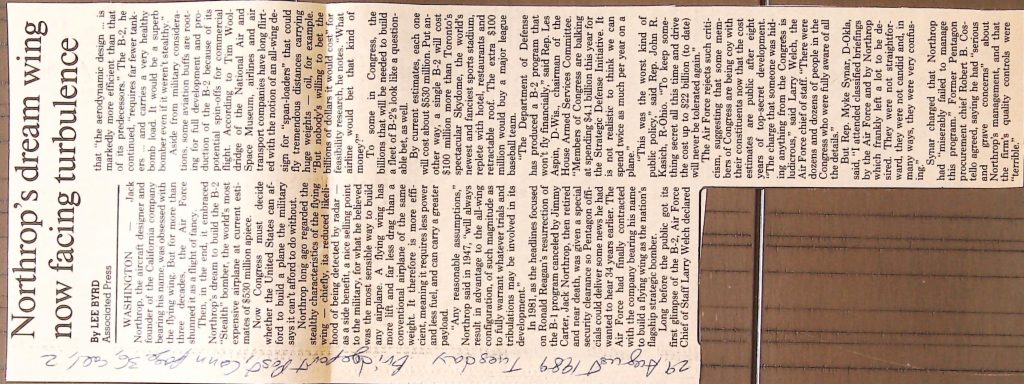 Northrop's dream wing
now facing turbulence
By LEE BYRD
Associated Press
WASHINGTON — Jack
Northrop, the aircraft designer and
founder of the California company
bearing his name, was obsessed with
the flying wing. But for more than
three decades, the Air Force
shunned it as a flight of fancy.
Then, in the end, it embraced
Northrop's dream to build the B-2
"Stealth" bomber, the world's most
expensive airplane at current esti-
mates of $530 million apiece.
Now Congress must decide
whether the United States can af-
ford to build a plane the military
says it can't afford to do without.
The stealthy characteristics of the flying
wing — chiefly, its reduced likeli-
hood of being detected by radar —
as a side benefit, a nice selling point
to the military, for what he believed
was the most sensible way to build
any airplane. A flying wing has
more lift and far less drag than a
conventional airplane of the same
weight. It therefore is more effi-
cient, meaning it requires less power
and less fuel, and can carry a greater
payload.
"Any reasonable assumptions,"
Northrop said in 1947, "will always
result in advantage to the all-wing
configuration, of such magnitude as
to fully warrant whatever trials and
tribulations may be involved in its
development."
In 1981, as the headlines focused
on Ronald Reagan's resurrection of
the B-1 program canceled by Jimmy
Carter, Jack Northrop, then retired
and near death, was given a special
security clearance so Pentagon offi-
cials could deliver some news he had
wanted to hear 34 years earlier. The
Air Force had finally contracted
with the company bearing his name
to build a flying wing as the nation's
flagship strategic bomber.
Long before the public got its
first glimpse of the B-2, Air Force
Chief of Staff Larry Welch declared
that "its aerodynamic design is
markedly more efficient than that
of its predecessors." The B-2, he
continued, "requires far fewer tank-
ers and carries a very healthy
bomb load. It would be a superb
bomber even if it weren't stealthy."
Aside from military considera-
tions, some aviation buffs are root-
ing for the development and pro-
duction of the B-2 because of its
potential spin-offs for commercial
flight. According to Tim Wool-
dridge of the National Air and
Space Museum, airlines and air
transport companies have long flirt-
ed with the notion of an all-wing de-
sign for "span-loaders" that could
fly tremendous distances carrying
huge weights — oil, for example.
"But nobody's willing to bet the
billions of dollars it would cost" for
feasibility research, he notes. "What
airline would bet that kind of
money?"
To some in Congress, the
billions that will be needed to build
a fleet of B-2's look like a question-
able bet, as well.
By current estimates, each one
will cost about $530 million. Put an-
other way, a single B-2 will cost
$100 million more than Toronto's
spectacular Skydome, the world's
newest and fanciest sports stadium,
replete with hotel, restaurants and
retractable roof. The extra $100
million would buy a major league
baseball team.
"The Department of Defense that
has produced a B-2 program that
won't fly financially," said Rep. Les
Aspin, D-Wis., chairman of the
House Armed Services Committee.
"You've got Congressmen balking
at spending $4.1 billion this year for
the Strategic Defense Initiative. It
is not realistic to think we can
spend twice as much per year on a
plane."
"This was the worst kind of
public policy," said Rep. John R.
Kasich, R-Ohio. "To keep some-
thing secret all the time and drive
the cost up (to $22 billion to date)
will never be tolerated again."
The Air Force rejects such criti-
cism, suggesting that some mem-
bers of Congress may be coy with
their constituents now that the cost
estimates are public after eight
years of top-secret development.
"The charge that somehow this was
anything secret from the Congress is
ludicrous," said Larry Welch, the
Air Force chief of staff. "There were
dozens and dozens of people in the
Congress who were fully aware of all
the details."
But Rep. Myke Synar, D-Okla.,
said, "I attended classified briefings
by the Air Force and by Northrop
which frankly left a lot to be de-
sired. They were not straightfor-
ward, they were not candid and, in
many ways, they were very confus-
ing."
Synar charged that Northrop
had "miserably failed to manage
this program." Former Pentagon
procurement chief Robert B. Cos-
tello agreed, saying he had "serious
and grave concerns" about
Northrop's management and that
the firm's quality controls were
"terrible."
29 August 1989 Tuesday Bridgeport Post, Conn page 36, col. 2